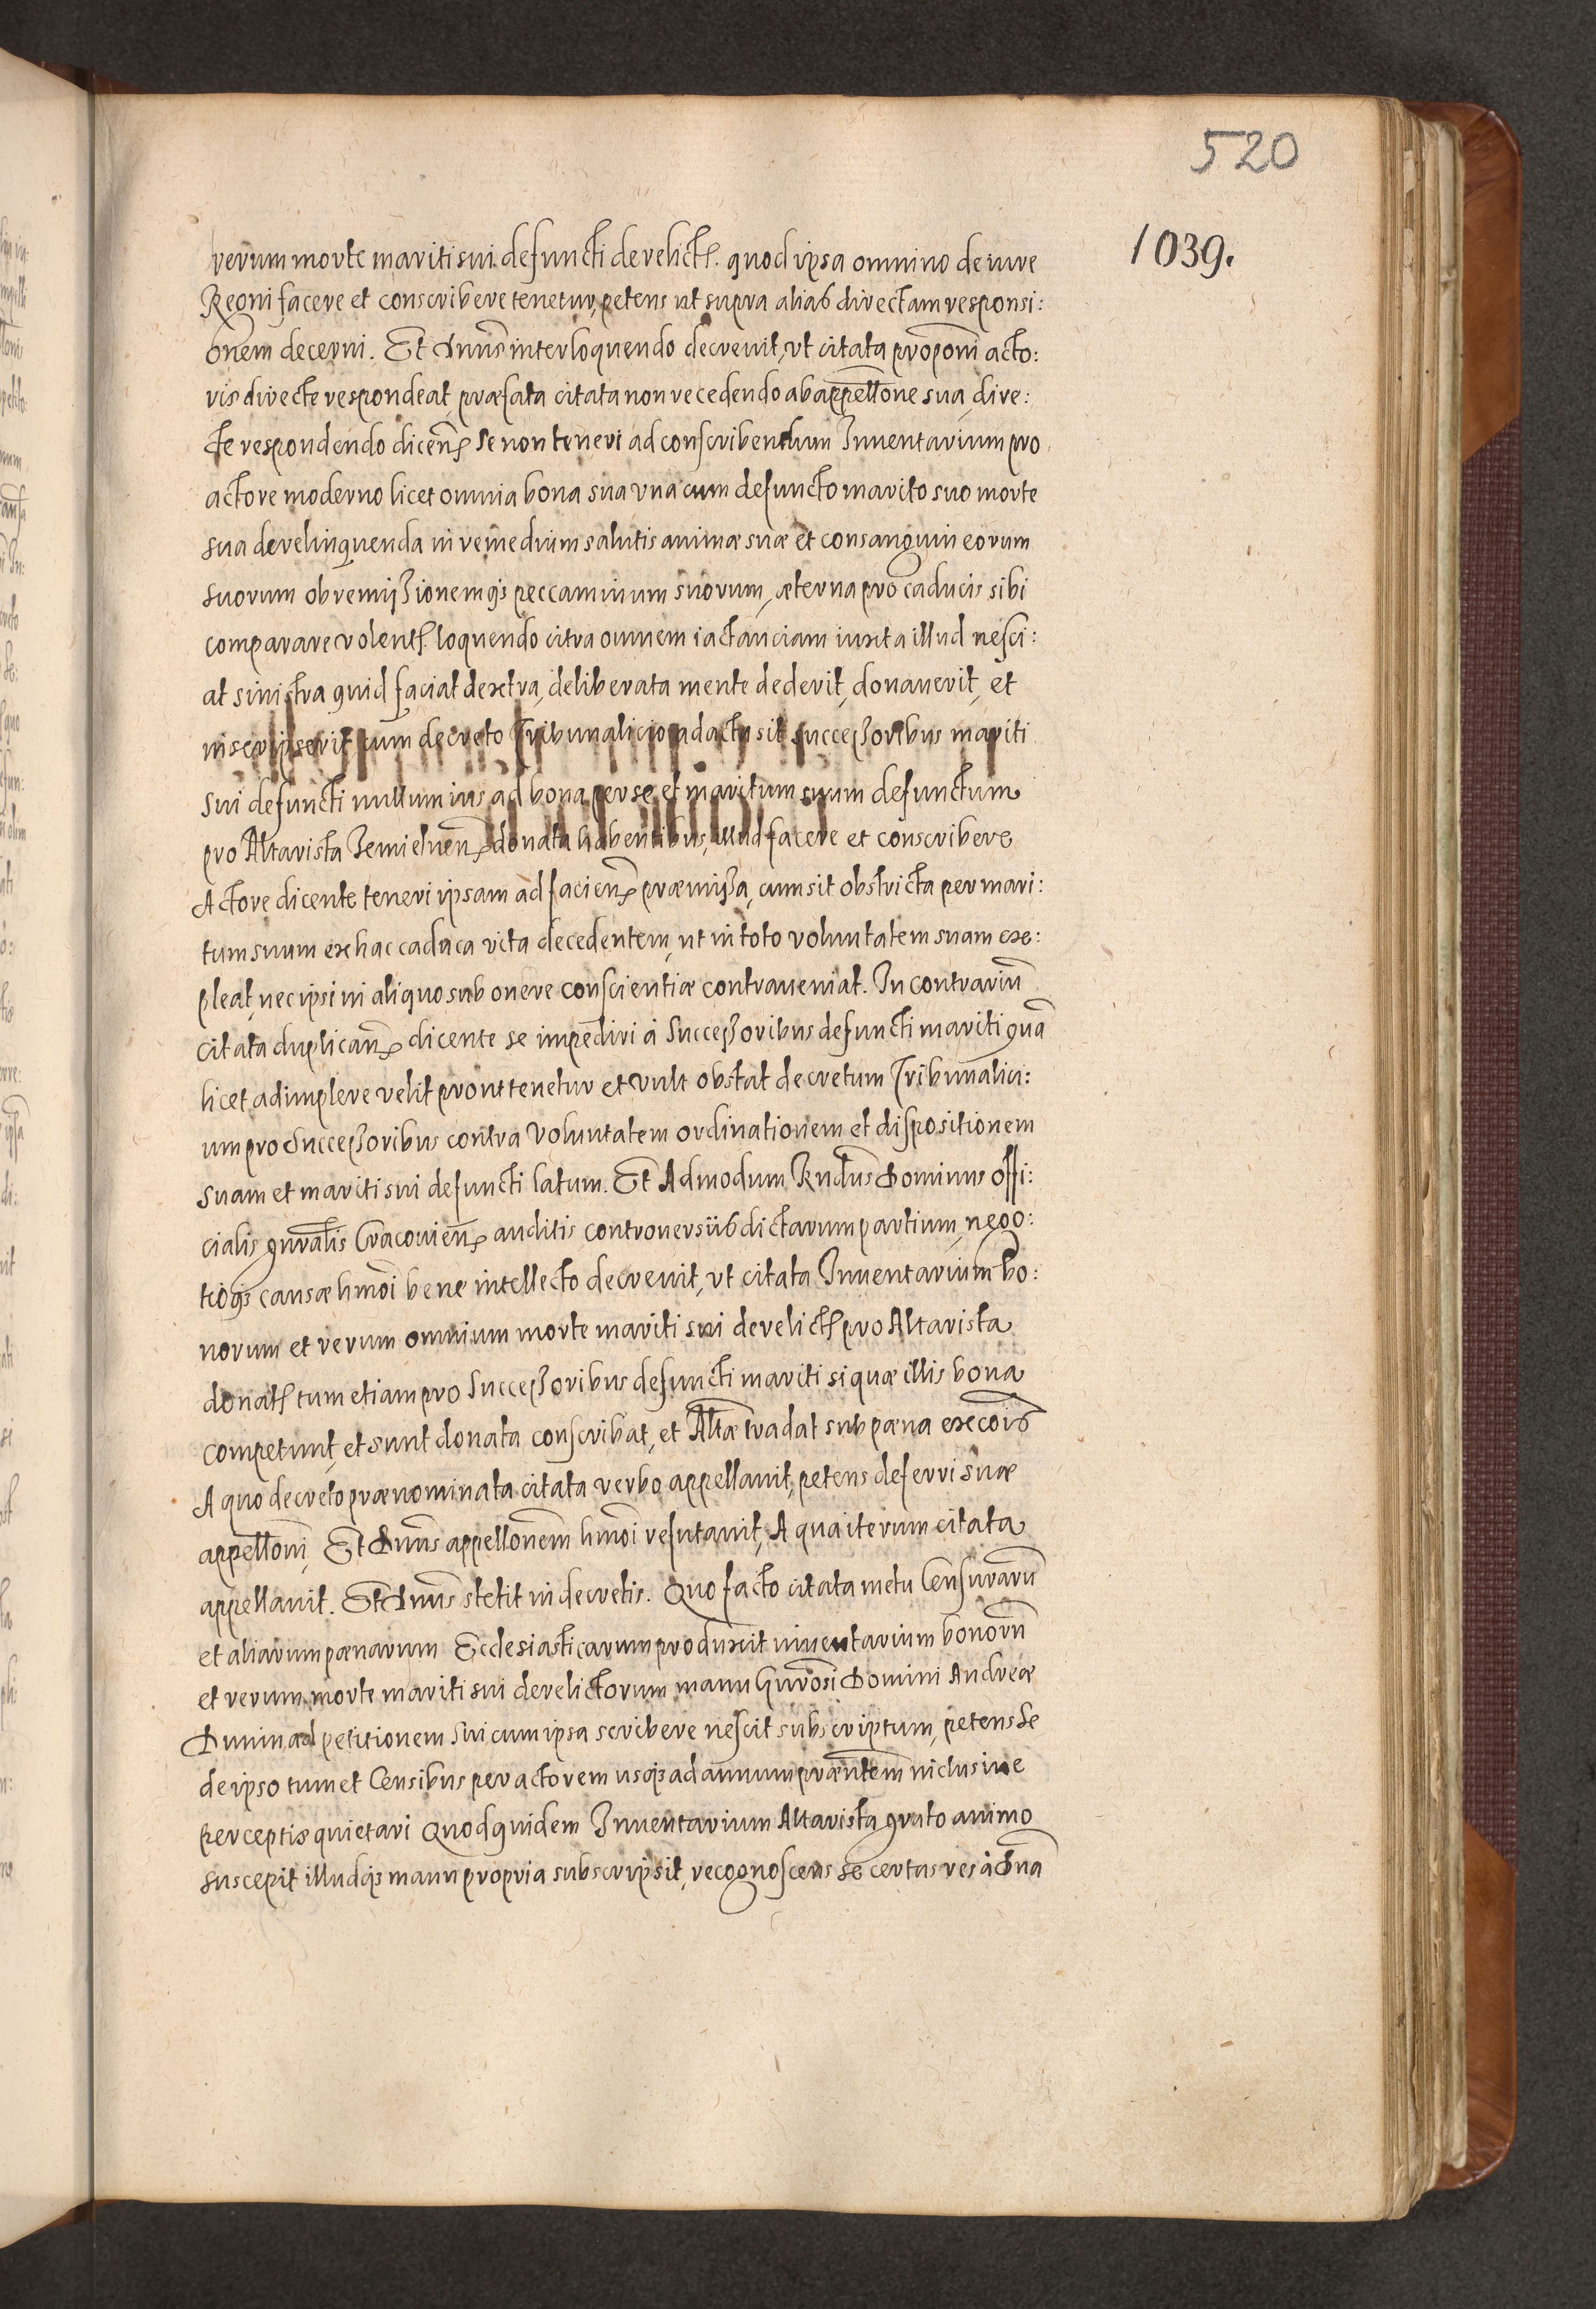 520
1039.
rerum morte mariti sui defuncti derelict. quod ipsa omnino de iure
Regni facere et conscribere tenetur, petens ut supra alias directam responsi:
onem decerni. Et Dnus interloquendo decreuit, vt citata proponi acto:
ris directe respondeat, præfata citata non recedendo ab appellone sua, dire:
cte respondendo dicen se non teneri ad conscribendum Inuentarium pro
actore moderno licet omnia bona sua vna cum defuncto marito suo morte
sua derelinquenda in remedium salutis animæ suæ et consanguineorum
suorum ob remissionemqs peccaminum suorum, æterna pro caducis sibi
comparare volent. loquendo citra omnem iactanciam iuxta illud nesci:
at sinistra quid faciat dextra, deliberata mente dederit, donauerit, et
inscripserit, cum decreto Tribunalicio adacta sit successoribus mariti
sui defuncti nullum ius ad bona per se et maritum suum defunctum
pro Altarista Zemielnen donata habentibus, illud facere et conscribere
Actore dicente teneri ipsam ad facien præmissa, cum sit obstricta per mari:
tum suum ex hac caduca vita decedentem, ut in toto voluntatem suam exe:
pleat, nec ipsi in aliquo sub onere conscientiæ contraueniat. In contrariū
citata duplican dicente se impediri à Successoribus defuncti mariti quā
licet adimplere velit prout tenetur et vult obstat decretum Tribunalici:
um pro Successoribus contra Voluntatem ordinationem et dispositionem
suam et mariti sui defuncti latum. Et Admodum Rndus Dominus Offi:
cialis gnralis Cracouien auditis controuersiis dictarum partium, nego:
tioqs causæ hmoi bene intellecto decreuit, vt citata Inuentarium bo:
norum et rerum omnium morte mariti sui derelict pro Altarista
donat tum etiam pro Successoribus defuncti mariti si quæ illis bona
competunt, et sunt donata conscribat, et Altæ tradat sub pæna execōis
A quo decreto prænominata citata verbo appellauit, petens deferri suæ
appelloni, Et Dnus appellonem hmoi refutauit, A qua iterum citata
appellauit. Et Dnus stetit in decretis. Quo facto citata metu Censurarū
et aliarum pænarum Ecclesiasticarum produxit inuentarium bonorū
et rerum morte mariti sui derelictorum manu Gnrosi Domini Andreæ
Dunin ad petitionem sui cum ipsa scribere nescit subscriptum, petens se
de ipso tum et Censibus per actorem usqs ad annum præntem inclusiue
perceptis quietari Quod quidem Inuentarium Altarista grato animo
suscepit illudqs manu propria subscripsit, recognoscens se certas res à Dna